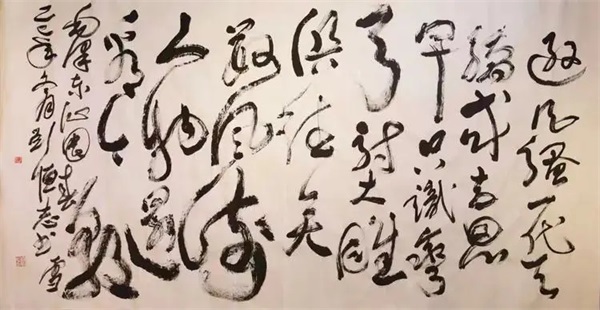 逊风骚一代天
骄成吉思
只識彎
弓射大雕
俱往矣
数风流
人物還
看今朝
毛泽东沁園春雪
年月彭恒志书